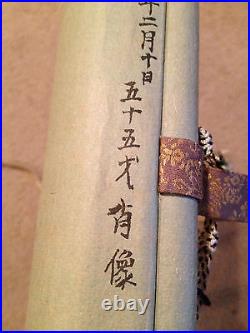 年二月十日
五十五才肖像